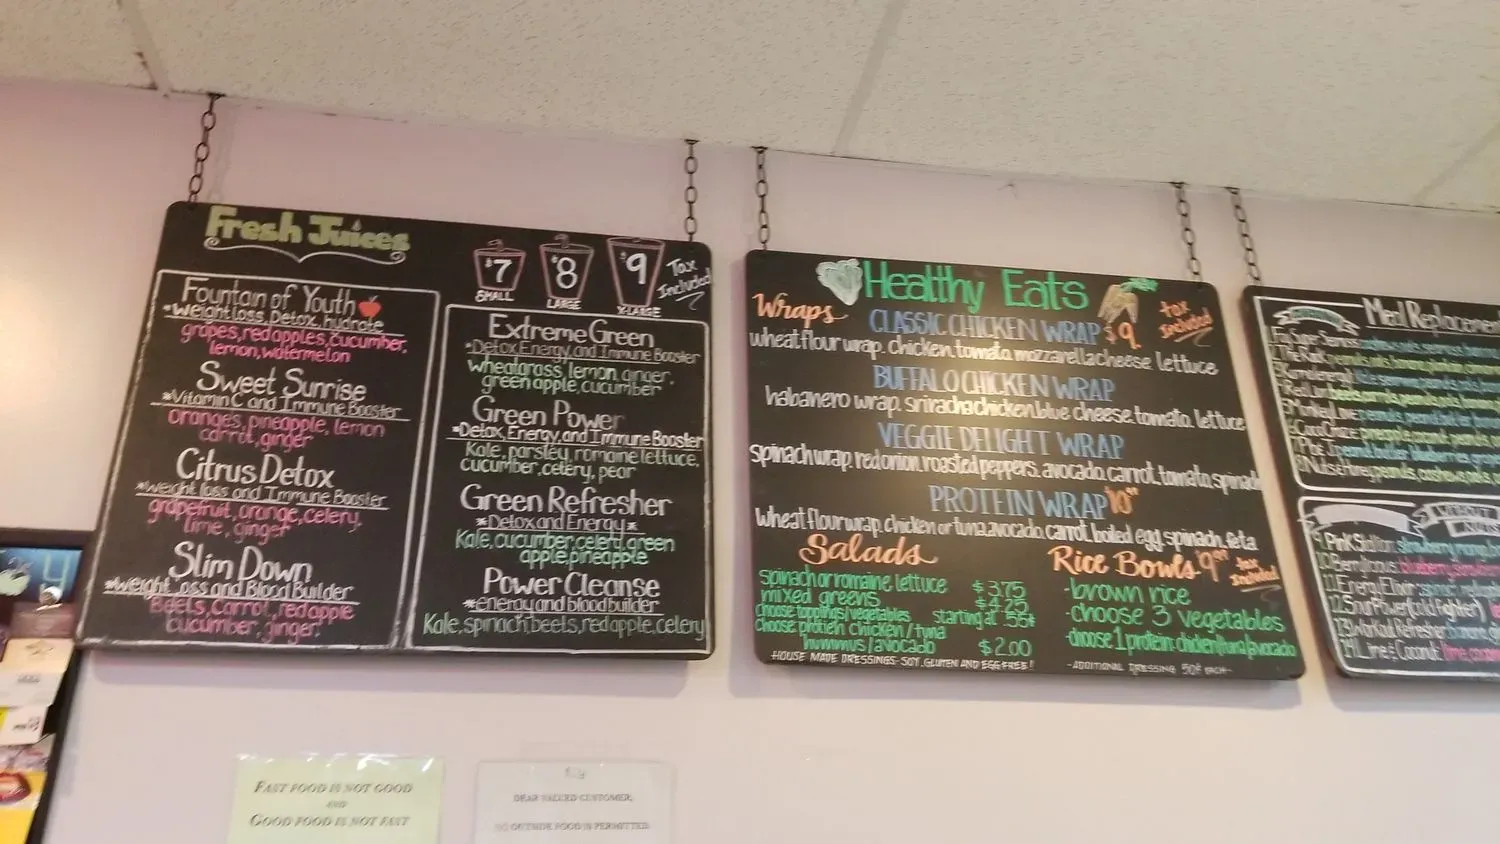 Fresh Juices
$7 $8 $9
SMALL LARGE X-LARGE
Tax
Included
Fountain of Youth
*Weight loss, Detox, hydrate
grapes, red apples, cucumber,
lemon, watermelon
Sweet Sunrise
*Vitamin C and Immune Booster
oranges, pineapple, lemon
carrot, ginger
Citrus Detox
*Weight loss and Immune Booster
grapefruit, orange, celery,
lime, ginger
Slim Down
*Weight Loss and Blood Builder
Beets, Carrot, red apple
cucumber, ginger
Extreme Green
*Detox Energy and Immune Booster
Wheatgrass, lemon, ginger,
green apple, cucumber
Green Power
*Detox, Energy, and Immune Booster
Kale, parsley, romaine lettuce,
cucumber, celery, pear
Green Refresher
*Detox and Energy*
Kale, cucumber, celery, green
apple, pineapple
Power Cleanse
*energy and blood builder
Kale, spinach, beets, red apple, celery
Healthy Eats
Wraps
CLASSIC CHICKEN WRAP $9
tax
included
wheat flour wrap, chicken, tomato, mozzarella cheese, lettuce
BUFFALO CHICKEN WRAP
habanero wrap, sriracha chicken, blue cheese, tomato, lettuce
VEGGIE DELIGHT WRAP
spinach wrap, red onion, roasted peppers, avocado, carrot, tomato, spinach
PROTEIN WRAP
wheat flour wrap, chicken or tuna, avocado, carrot, boiled egg, spinach, feta
Salads
spinach or romaine lettuce $3.75
mixed greens $4.25
choose toppings/vegetables starting at .55¢
choose protein: Chicken/tuna
hummus/avocado $2.00
HOUSE MADE DRESSINGS-SOY, GLUTEN AND EGG FREE!
Rice Bowls
tax
Included
-brown rice
-choose 3 vegetables
-choose 1 protein: chicken/tuna/avocado
-ADDITIONAL DRESSING 50¢ EACH-
Meal Replacement
FAST FOOD IS NOT GOOD
AND
GOOD FOOD IS NOT FAST
DEAR VALUED CUSTOMER,
NO OUTSIDE FOOD IS PERMITTED